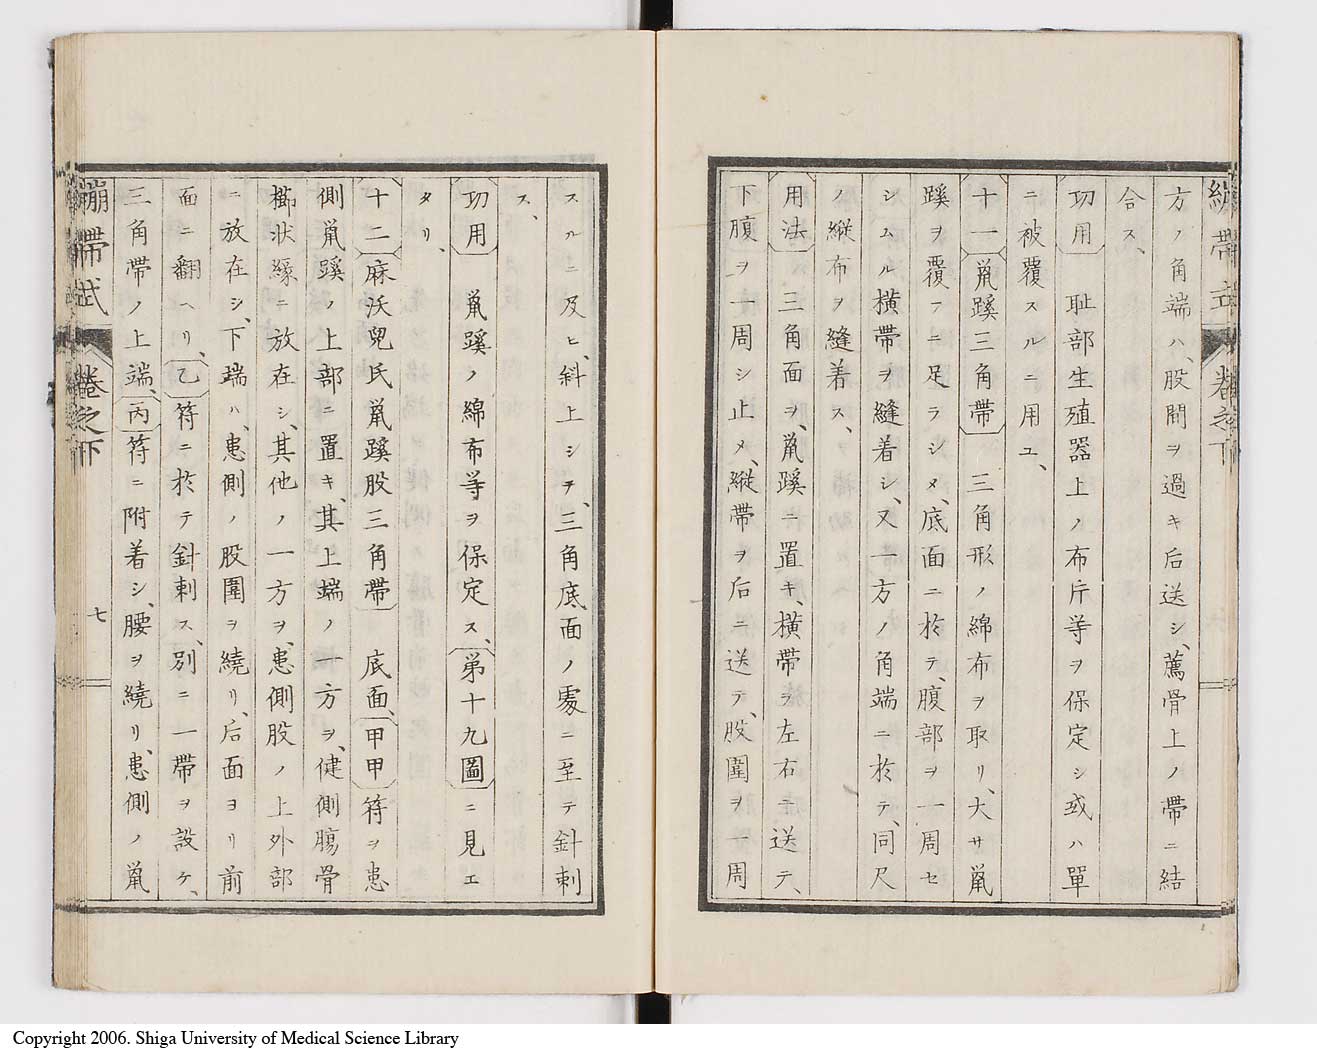 繃帶式 卷之下
方ノ角端ハ、股間ヲ過キ后送シ、薦骨上ノ帶ニ結
合ス、
功用 耻部生殖器上ノ布片等ヲ保定シ或ハ單
ニ被覆スルニ用ユ、
十一 鼠蹊三角帶 三角形ノ綿布ヲ取リ、大サ鼠
蹊ヲ覆フニ足ラシメ、底面ニ於テ、腹部ヲ一周セ
シムル横帶ヲ縫着シ、又一方ノ角端ニ於テ、同尺
ノ縱布ヲ縫着ス、
用法 三角面ヲ、鼠蹊ニ置キ、横帶ヲ左右ニ送テ、
下腹ヲ一周シ止メ、縱帶ヲ后ニ送テ、股圍ヲ一周
スルニ及ヒ、斜上シテ、三角底面ノ處ニ至テ針刺
ス、
功用 鼠蹊ノ綿布等ヲ保定ス、第十九圖ニ見エ
タリ、
十二 麻沃兒氏鼠蹊股三角帶 底面、甲甲符ヲ患
側鼠蹊ノ上部ニ置キ、其上端ノ方ヲ、健側膓骨
櫛状緣ニ放在シ、其他ノ一方ヲ、患側股ノ上外部
ニ放在シ、下端ハ、患側ノ股圍ヲ繞リ、后面ヨリ前
面ニ翻ヘリ、乙符ニ於テ針刺ス、別ニ一帶ヲ設ケ、
三角帶ノ上端、丙符ニ附着シ、腰ヲ繞リ、患側ノ鼠
繃帶式 卷之下 七
Copyright 2006. Shiga University of Medical Science Library